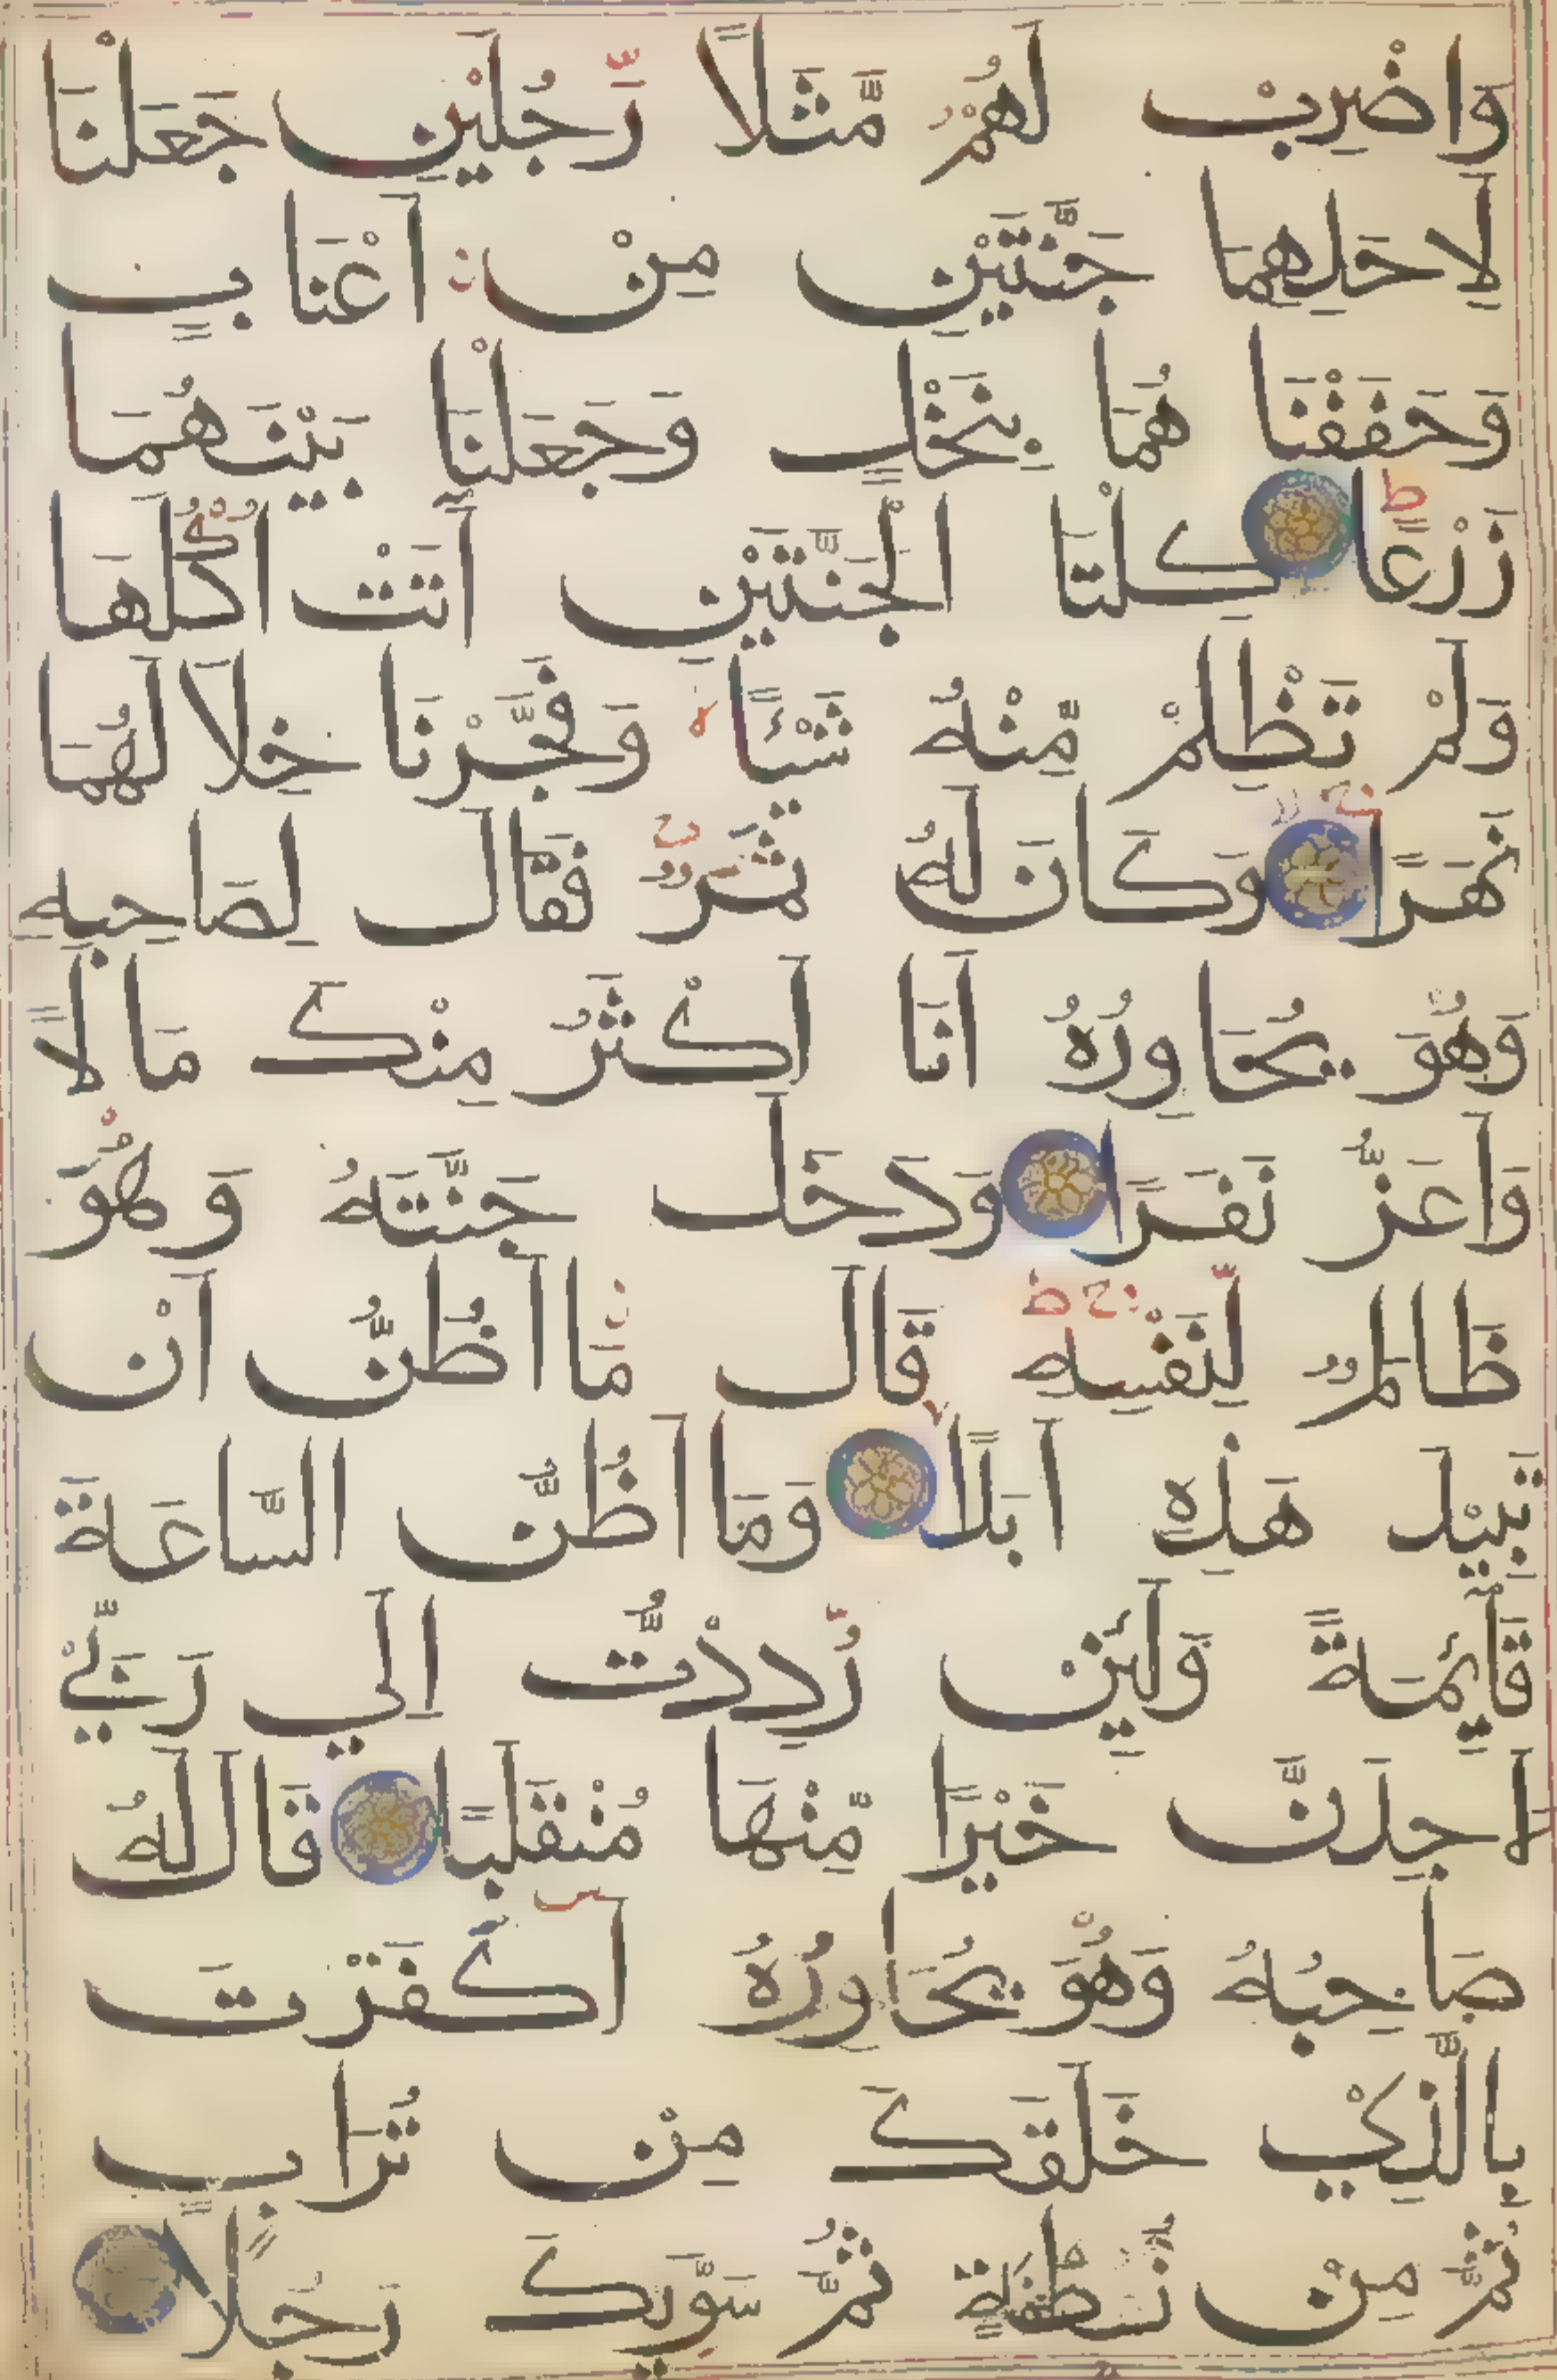 وَاضْرِبْ لَهُمْ مَّثَلًا رَّجُلَيْنِ جَعَلْنَا
لِاَحَدِهِمَا جَنَّتَيْنِ مِنْ اَعْنَابٍ
وَحَفَفْنَا هُمَا بِنَخْلٍ وَجَعَلْنَا بَيْنَهُمَا
زَرْعًا كِلْتَا الْجَنَّتَيْنِ آتَتْ اُكُلَهَا
وَلَمْ تَظْلِمْ مِّنْهُ شَيْئًا وَفَجَّرْنَا خِلَا لَهُمَا
نَهَرًا وَكَانَ لَهُ ثَمَرٌ فَقَالَ لِصَاحِبِهِ
وَهُوَ يُحَاوِرُهُ اَنَا اَكْثَرُ مِنْكَ مَالًا
وَاَعَزُّ نَفَرًا وَدَخَلَ جَنَّتَهُ وَهُوَ
ظَالِمٌ لِّنَفْسِهِ قَالَ مَا اَظُنُّ اَنْ
تَبِيْدَ هَذِهِ اَبَدًا وَمَا اَظُنُّ السَّاعَةَ
قَآئِمَةً وَلَئِنْ رُّدِدْتُّ اِلَي رَبِّيْ
لَاَجِدَنَّ خَيْرًا مِّنْهَا مُنْقَلَبًا قَالَ لَهُ
صَاحِبُهُ وَهُوَ يُحَاوِرُهُ اَكَفَرْتَ
بِالَّذِيْ خَلَقَكَ مِنْ تُرَابٍ
ثُمَّ مِنْ نُّطْفَةٍ ثُمَّ سَوّٰيكَ رَجُلًا